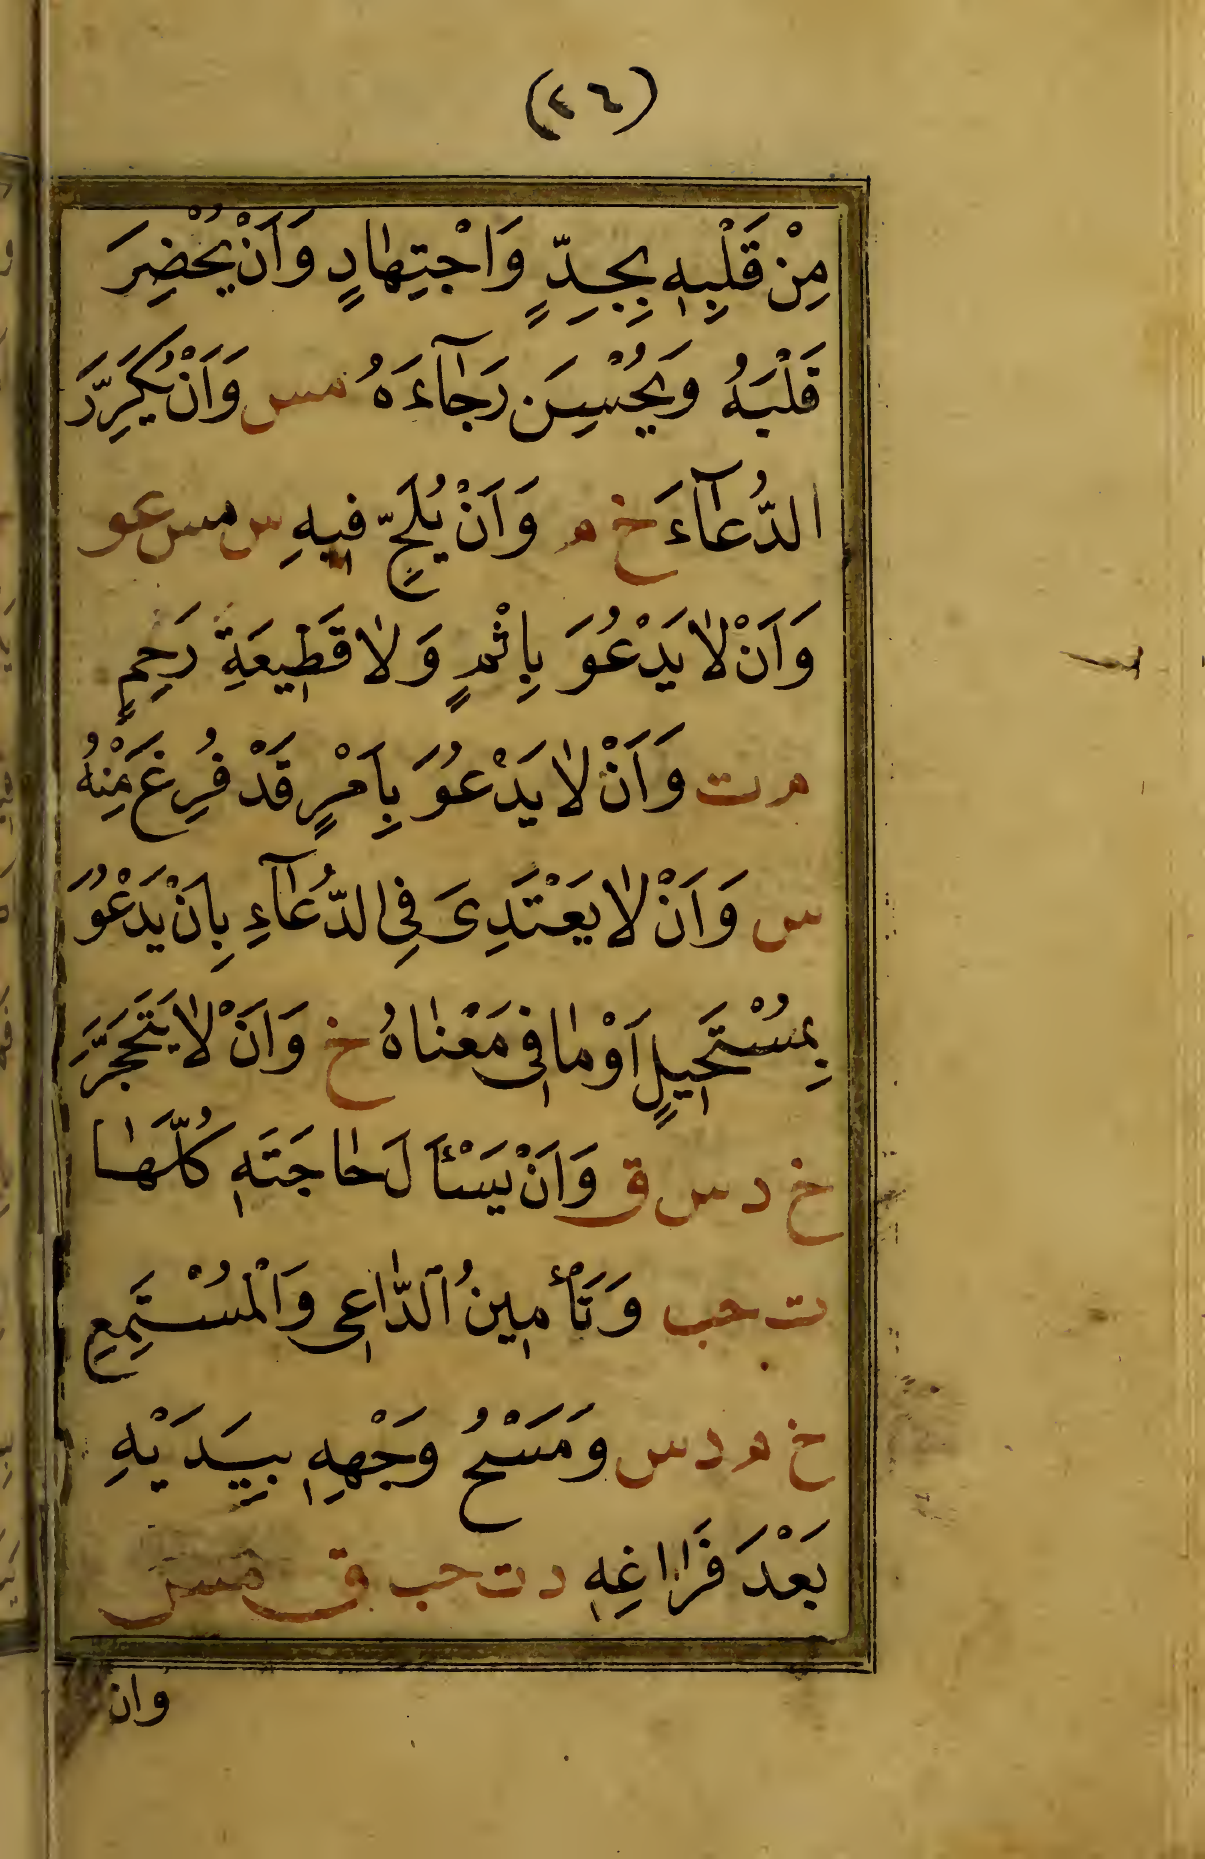 (٢٦)
مِنْ قَلْبِهِ بِجِدٍّ وَاجْتِهَادٍ وَاَنْ يُحْضِرَ
قَلْبَهُ وَيُحْسِنَ رَجَآءَهُ مس وَاَنْ يُكَرِّرَ
الدُّعَآءَ خ م وَاَنْ يُلِحَّ فِيهِ س مس عو
وَاَنْ لَا يَدْعُوَ بِاِثْمٍ وَلَا قَطِيعَةِ رَحِمٍ
م ت وَاَنْ لَا يَدْعُوَ بِاَمْرٍ قَدْ فُرِغَ مِنْهُ
س وَاَنْ لَا يَعْتَدِىَ فِى الدُّعَآءِ بِاَنْ يَدْعُوَ
بِمُسْتَحِيلٍ اَوْ مَا فِى مَعْنَاهُ خ وَاَنْ لَا يَتَحَجَّرَ
خ د س ق وَاَنْ يَسْئَلَ حَاجَتَهِ كُلَّهَا
ت حب وَتَأْمِينُ الدَّاعِى وَالْمُسْتَمِعِ
خ م د س وَمَسْحُ وَجْهِهِ بِيَدَيْهِ
بَعْدَ فَرَاغِهِ د ت حب ق مس
وان